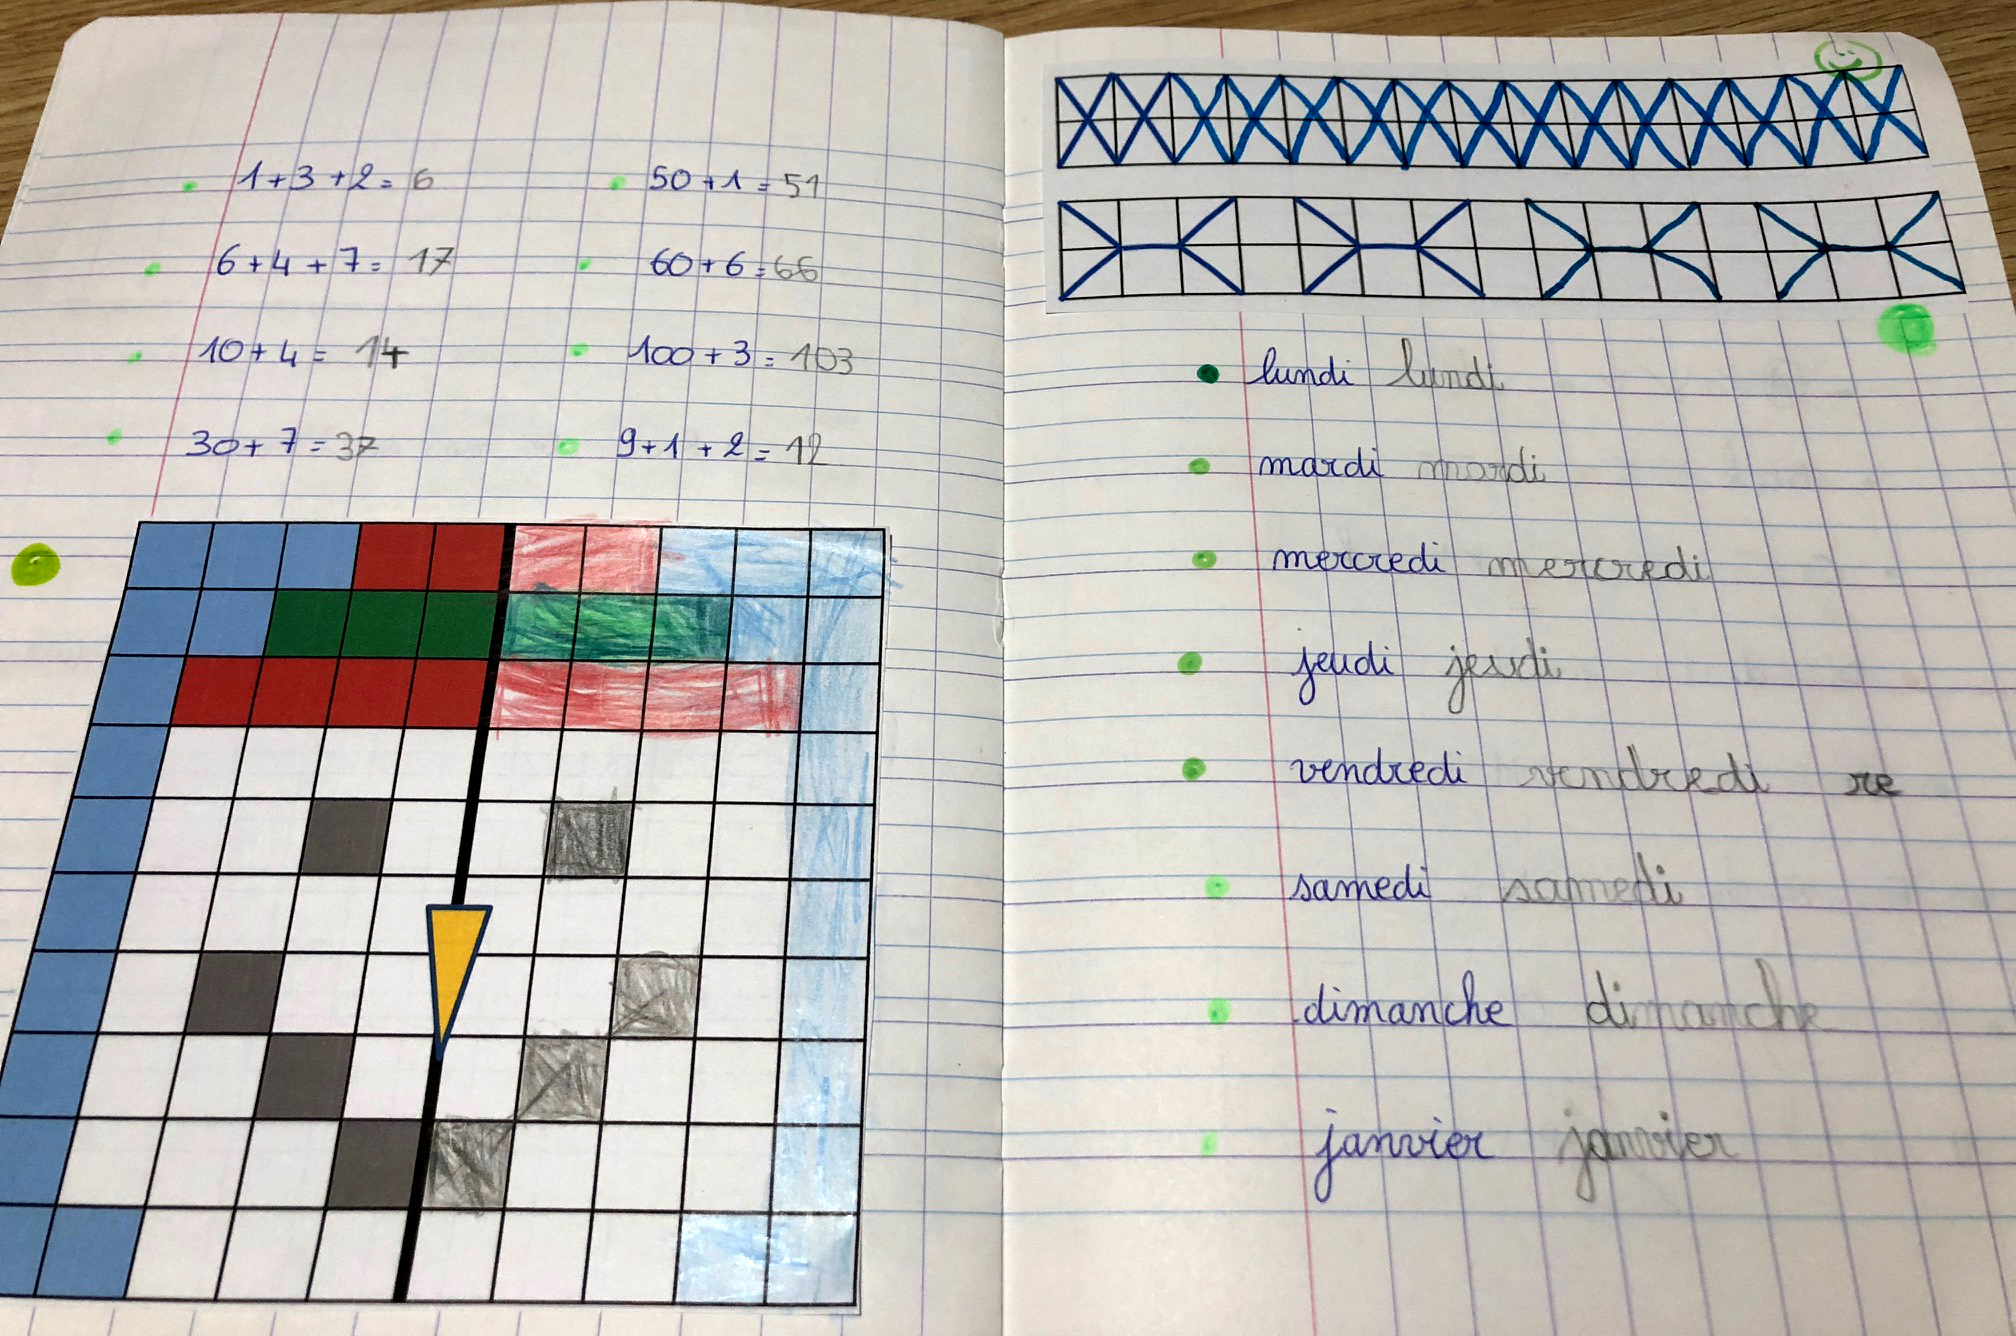 1+3+2= 6 50+1=51
6+4+7= 17 60+6=66
10+4= 14 100+3=103
30+7=37 9+1+2=12
lundi lundi
mardi mardi
mercredi mercredi
jeudi jeudi
vendredi vendredi re
samedi samedi
dimanche dimanche
janvier janvier